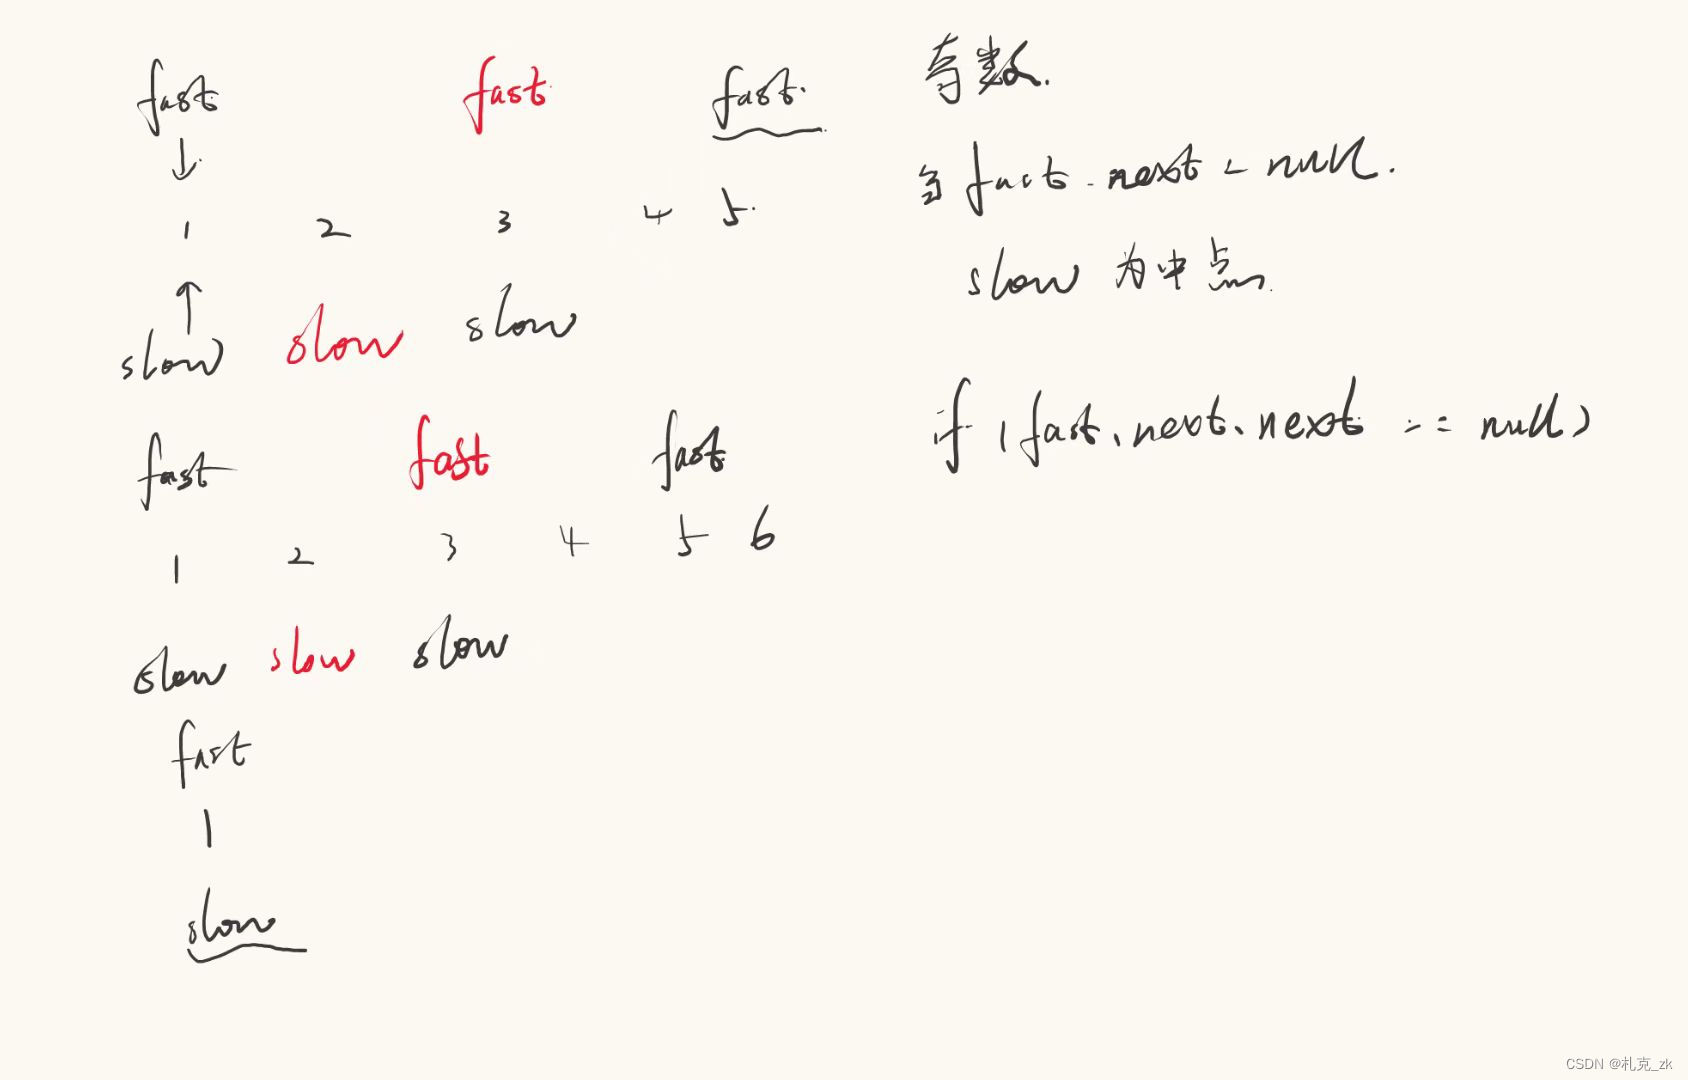 fast fast fast.
1 2 3 4 5.
slow slow slow
fast fast fast
1 2 3 4 5 6
slow slow slow
fast
1
slow
奇数.
当 fast.next = null.
slow 为中点.
if (fast.next.next == null)
CSDN @札克_zk